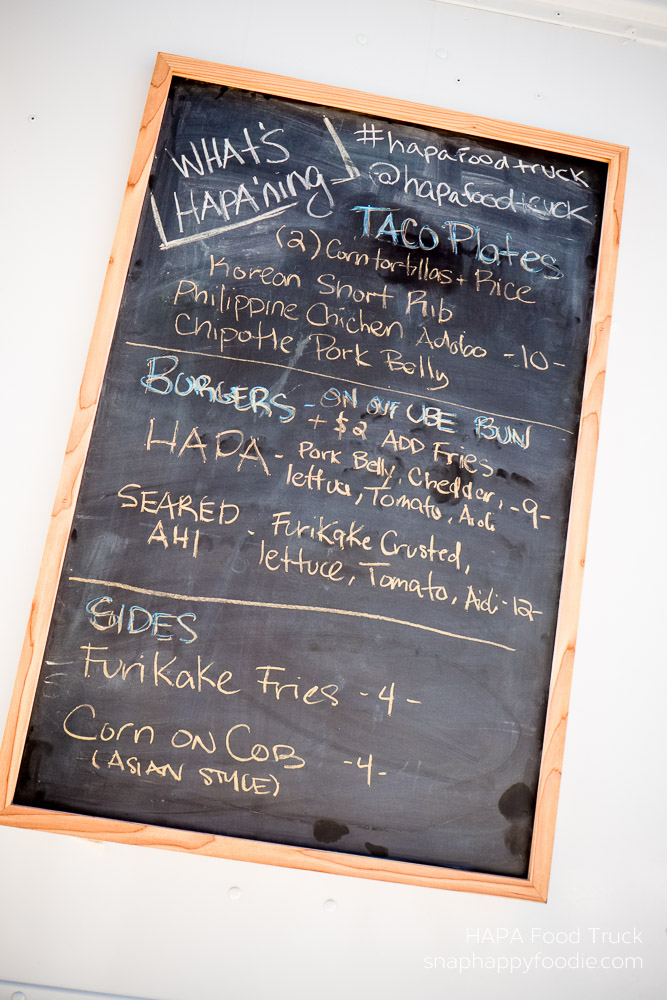 WHAT'S
HAPA'ning
#hapafoodtruck
@hapafoodtruck
TACO Plates
(2) Corn tortillas + Rice
Korean Short Rib
Philippine Chicken Adobo -10-
Chipotle Pork Belly
BURGERS - ON OUR UBE BUN
+ $2 ADD Fries
HAPA - Pork Belly, Cheddar,
lettuce, Tomato, Aioli -9-
SEARED AHI - Furikake Crusted,
lettuce, Tomato, Aioli -12-
SIDES
Furikake Fries -4-
Corn ON COB -4-
(ASIAN STYLE)
HAPA Food Truck
snaphappyfoodie.com